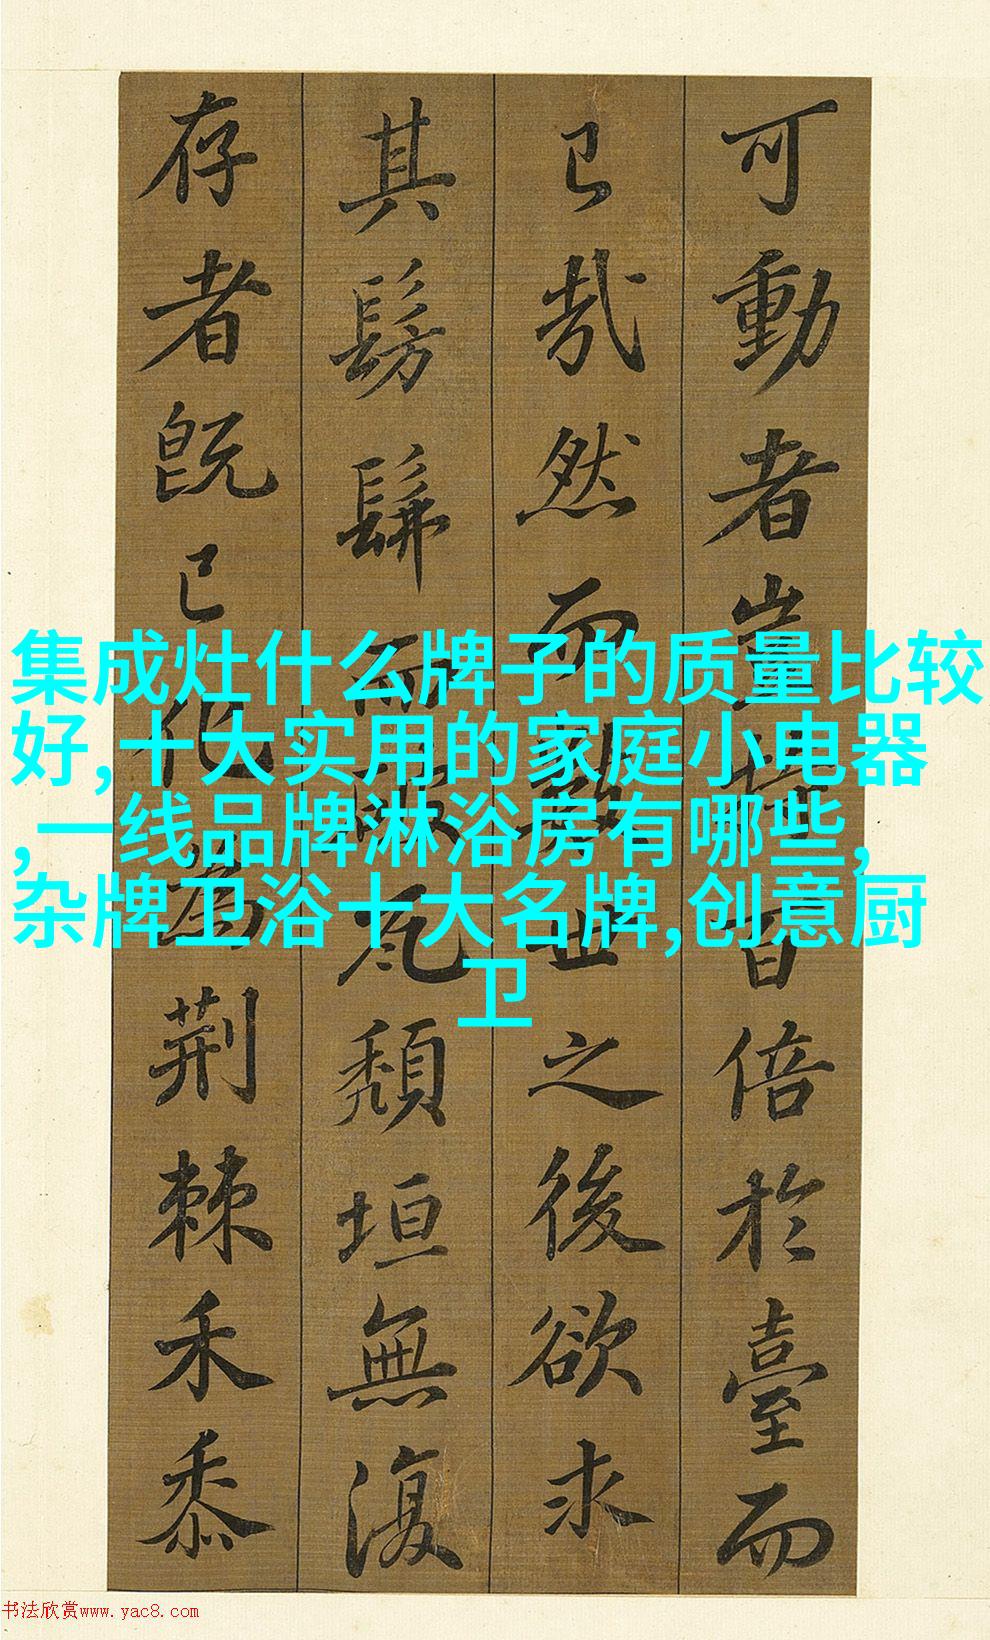 可動者豈特百倍於臺而
已哉然而數世之後欲求
其髣髴而破瓦頹垣無復
存者既已化為荊棘禾黍
集成灶什么牌子的质量比较
好,十大实用的家庭小电器
,一线品牌淋浴房有哪些,
杂牌卫浴十大名牌,创意厨
卫
书法欣赏www.yac8.com